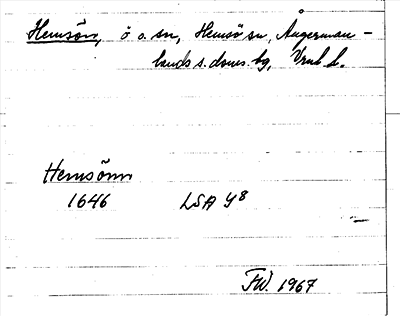 Hemsön, ö o. sn, Hemsö sn, Ångerman-
lands s. doms. bg, Vrnl l.
Hemsönn
1646 LSA Y8
FW. 1967